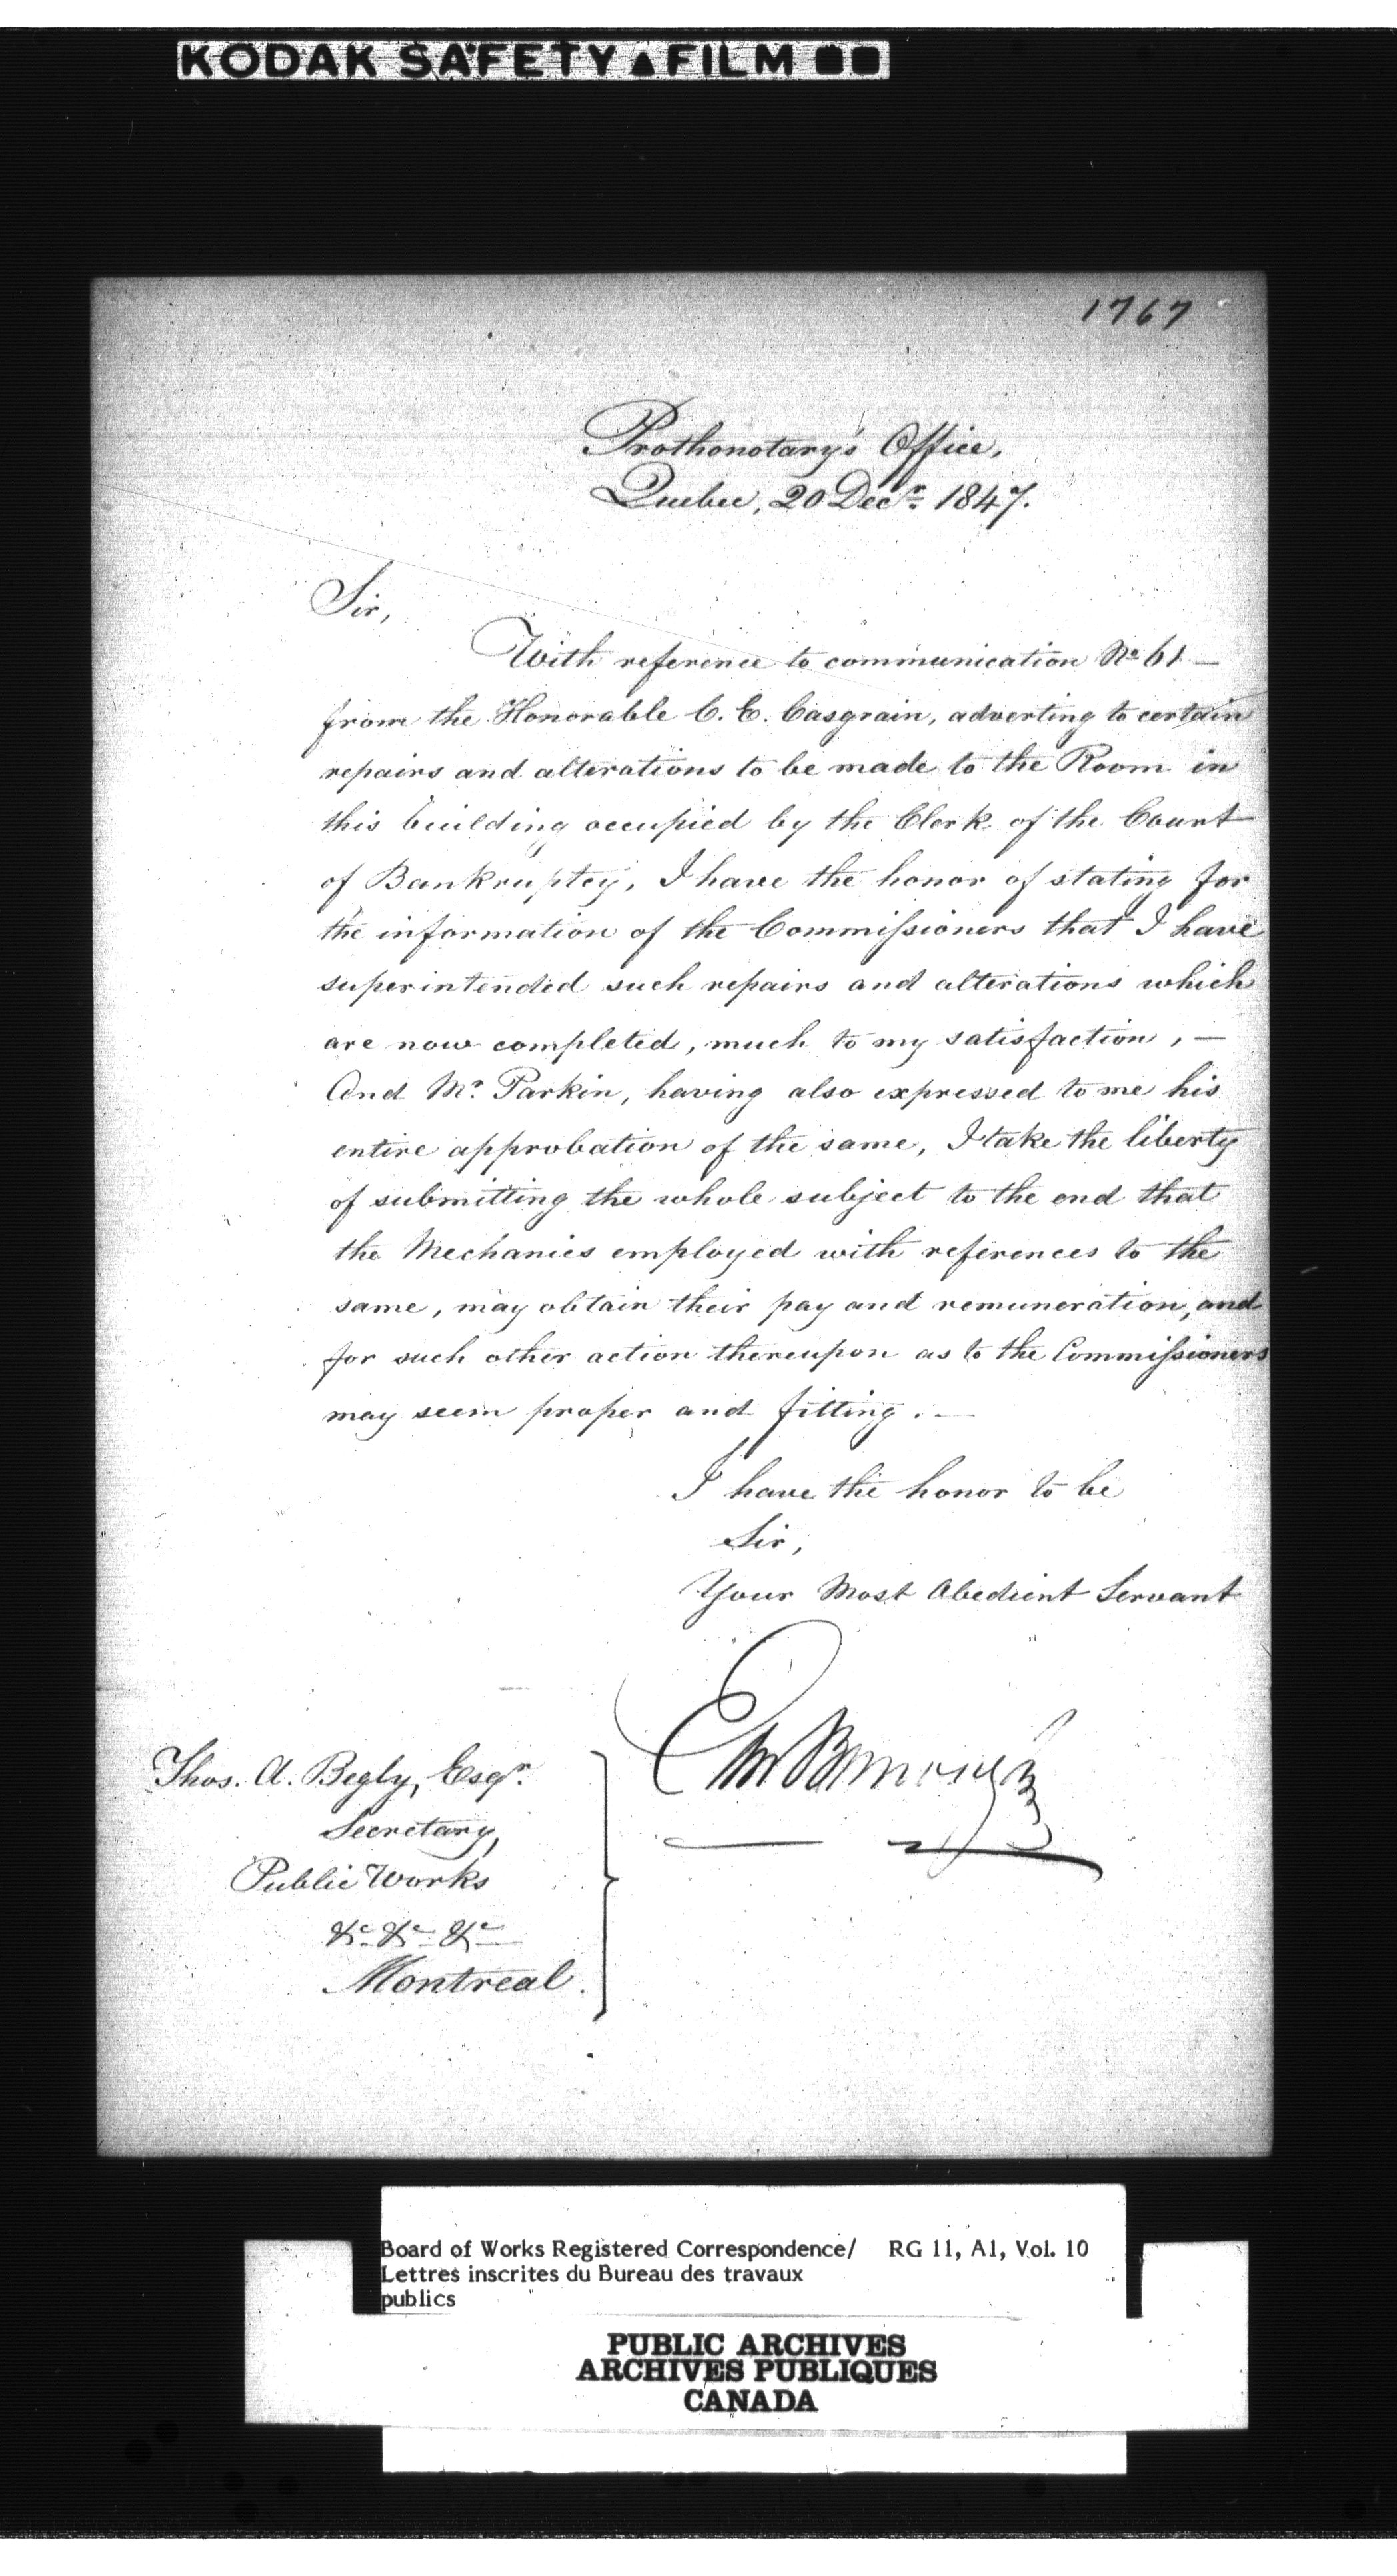 KODAK SAFETY FILM
1767
Prothonotary's Office,
Quebec, 20 Decr. 1847.
Sir,
With reference to communication No 61 —
from the Honorable C. E. Casgrain, adverting to certain
repairs and alterations to be made to the Room in
this building occupied by the Clerk of the Court
of Bankruptcy, I have the honor of stating for
the information of the Commissioners that I have
superintended such repairs and alterations which
are now completed, much to my satisfaction, —
And Mr. Parkin, having also expressed to me his
entire approbation of the same, I take the liberty
of submitting the whole subject to the end that
the Mechanics employed with references to the
same, may obtain their pay and remuneration, and
for such other action thereupon as to the Commissioners
may seem proper and fitting. —
I have the honor to be
Sir,
Your Most Obedient Servant
Thos. A. Begly, Esqr.
Secretary,
Public Works
&c &c &c
Montreal.
Board of Works Registered Correspondence/ RG 11, A1, Vol. 10
Lettres inscrites du Bureau des travaux
publics
PUBLIC ARCHIVES
ARCHIVES PUBLIQUES
CANADA